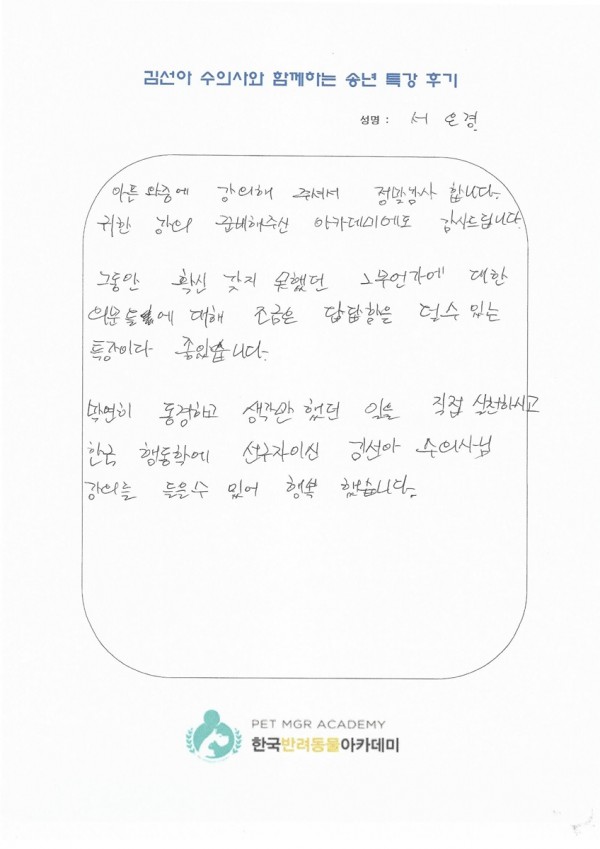 김선아 수의사와 함께하는 송년 특강 후기
성명 : 서은경
아픈 와중에 강의해 주셔서 정말감사 합니다.
귀한 강의 준비해주신 아카데미에도 감사드립니다
그동안 확신 갖지 못했던 그무언가에 대한
의문들에 대해 조금은 답답함을 덜수 있는
특강이라 좋았습니다.
막연히 동경하고 생각만 했던 일을 직접 실천하시고
한국 행동학에 선구자이신 김선아 수의사님
강의를 들을수 있어 행복 했습니다.
PET MGR ACADEMY
한국반려동물아카데미